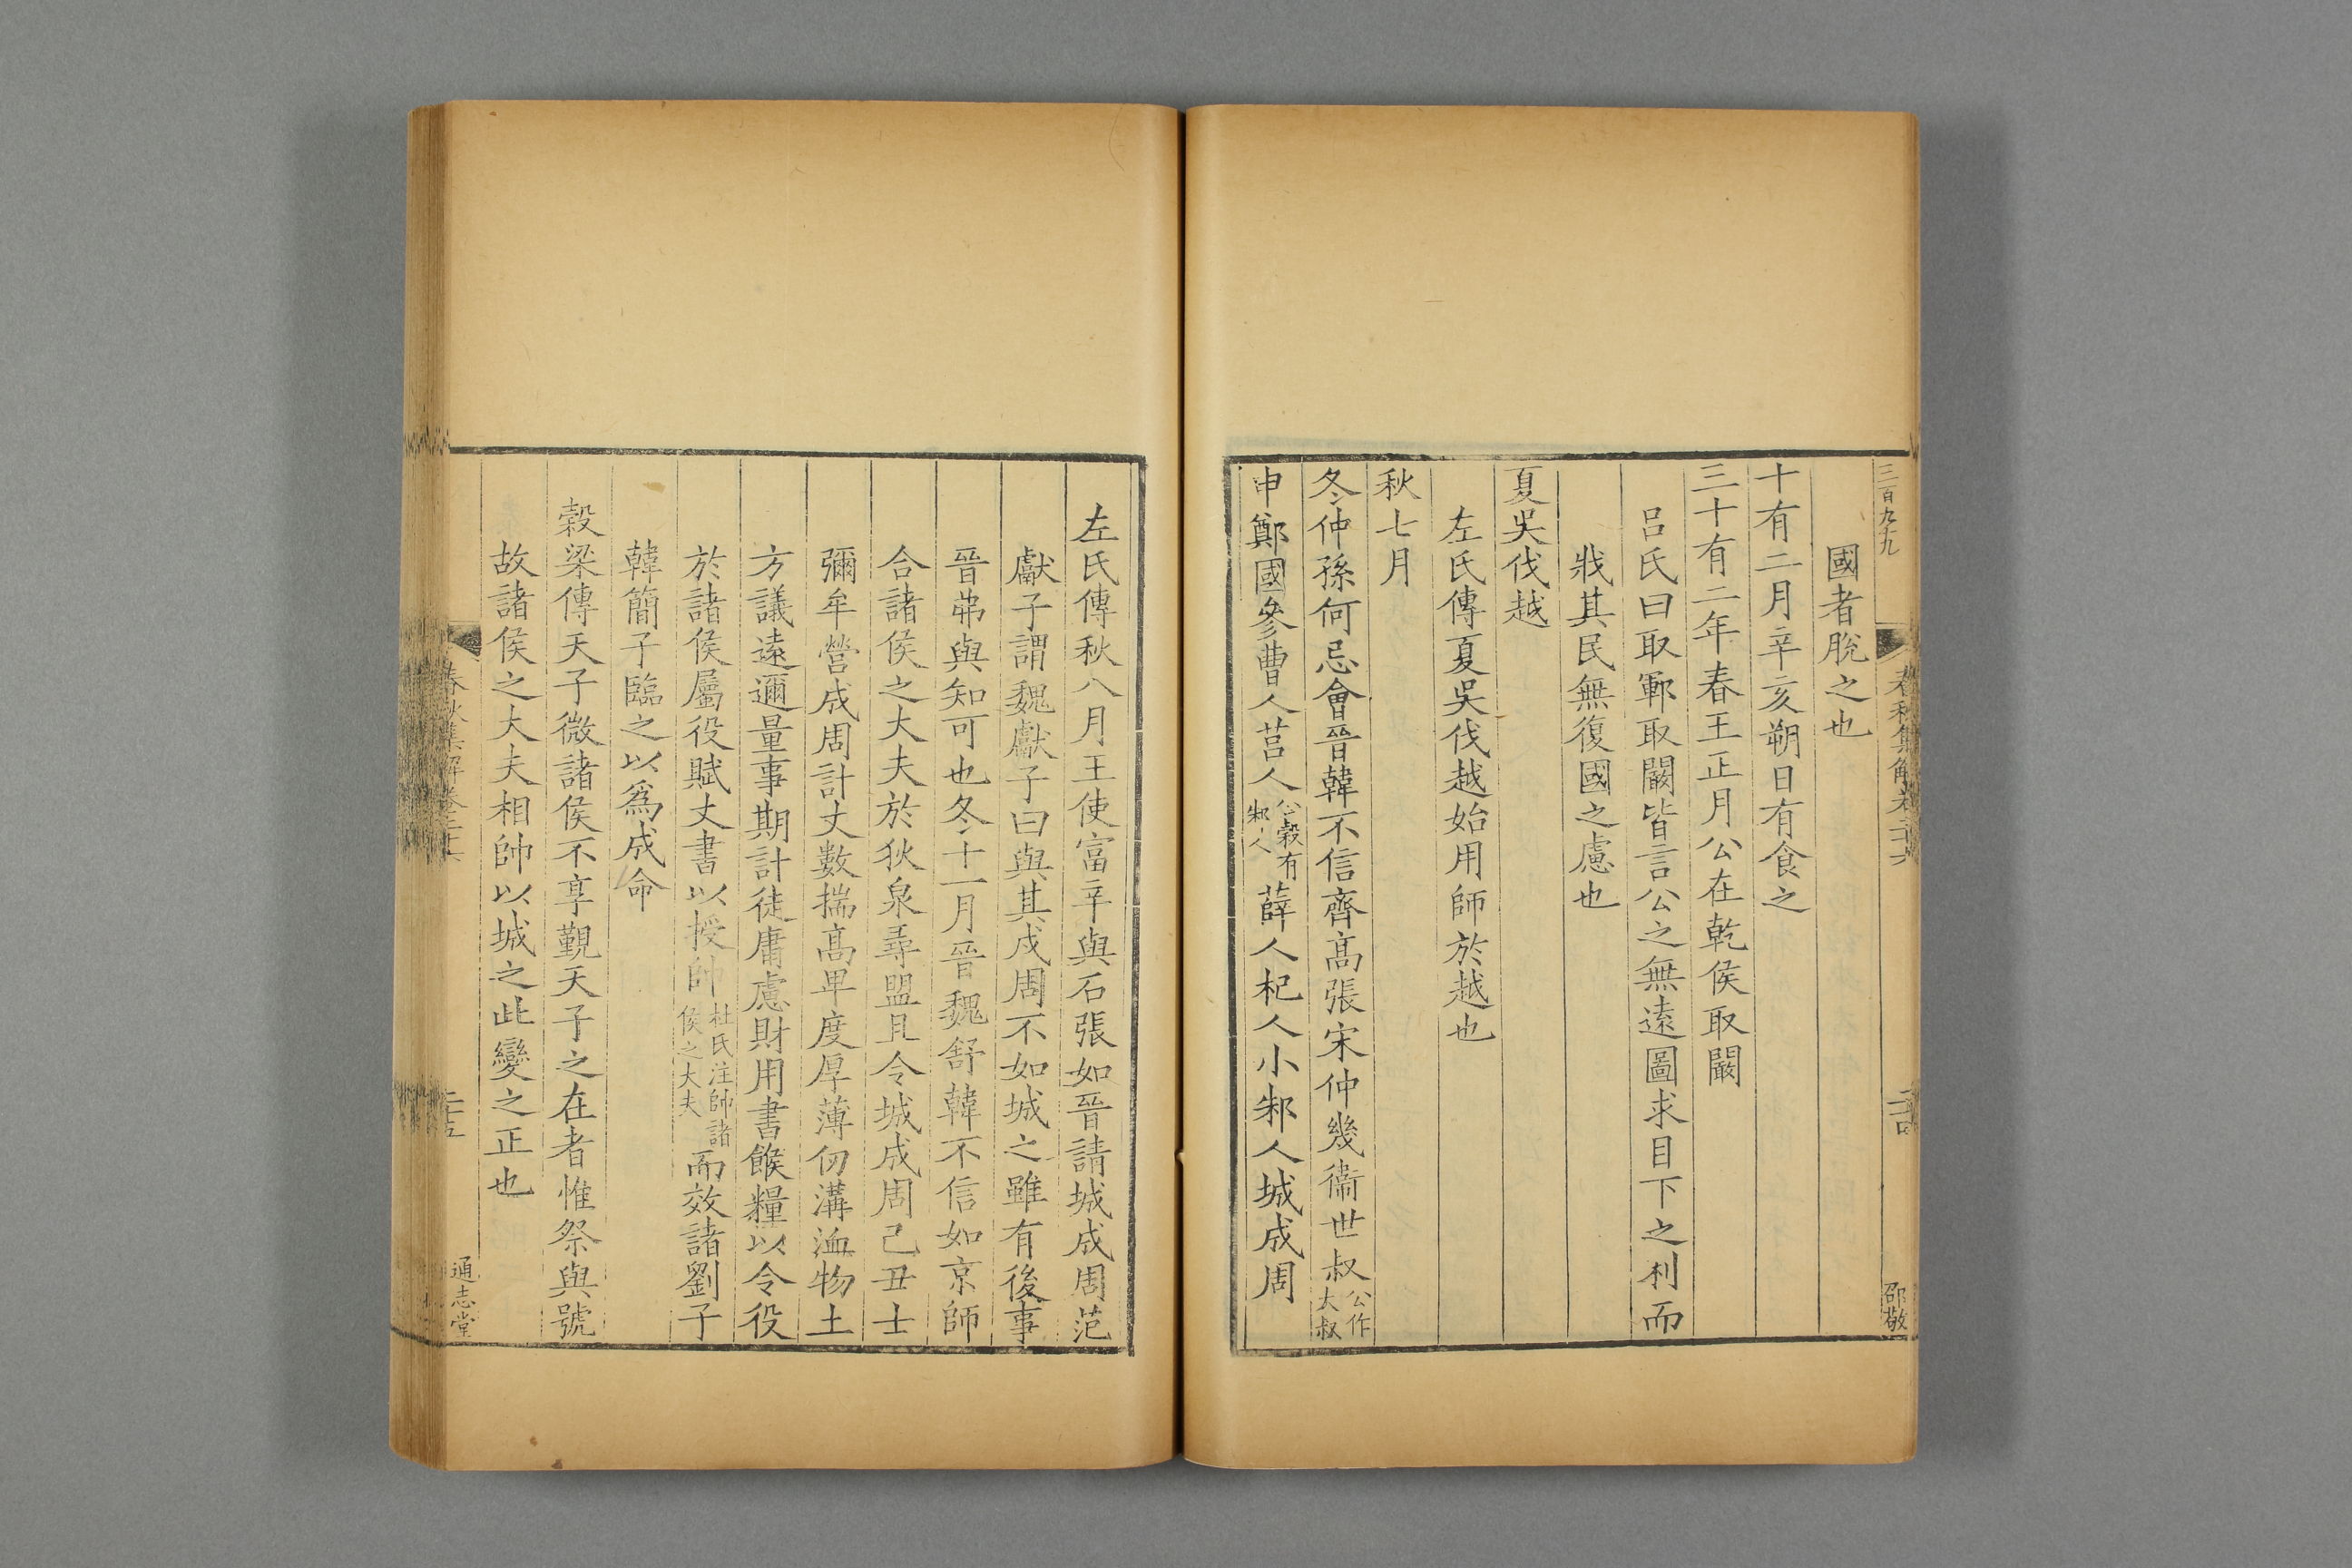 三百九十九
春秋集解卷二十六
二十四
邵敬
國者脫之也
十有二月辛亥朔日有食之
三十有二年春王正月公在乾侯取闞
呂氏曰取鄆取闞皆言公之無遠圖求目下之利而
戕其民無復國之慮也
夏吳伐越
左氏傳夏吳伐越始用師於越也
秋七月
冬仲孫何忌會晉韓不信齊高張宋仲幾衞世叔公作大叔
申鄭國參曹人莒人公穀有邾人薛人杞人小邾人城成周
左氏傳秋八月王使富辛與石張如晉請城成周范
獻子謂魏獻子曰與其戍周不如城之雖有後事
晉弗與知可也冬十一月晉魏舒韓不信如京師
合諸侯之大夫於狄泉尋盟且令城成周己丑士
彌牟營成周計丈數揣高卑度厚薄仞溝洫物土
方議遠邇量事期計徒庸慮財用書餱糧以令役
於諸侯屬役賦丈書以授帥杜氏注帥諸侯之大夫而效諸劉子
韓簡子臨之以爲成命
穀梁傳天子微諸侯不享覲天子之在者惟祭與號
故諸侯之大夫相帥以城之此變之正也
春秋集解卷二十六
二十五
通志堂